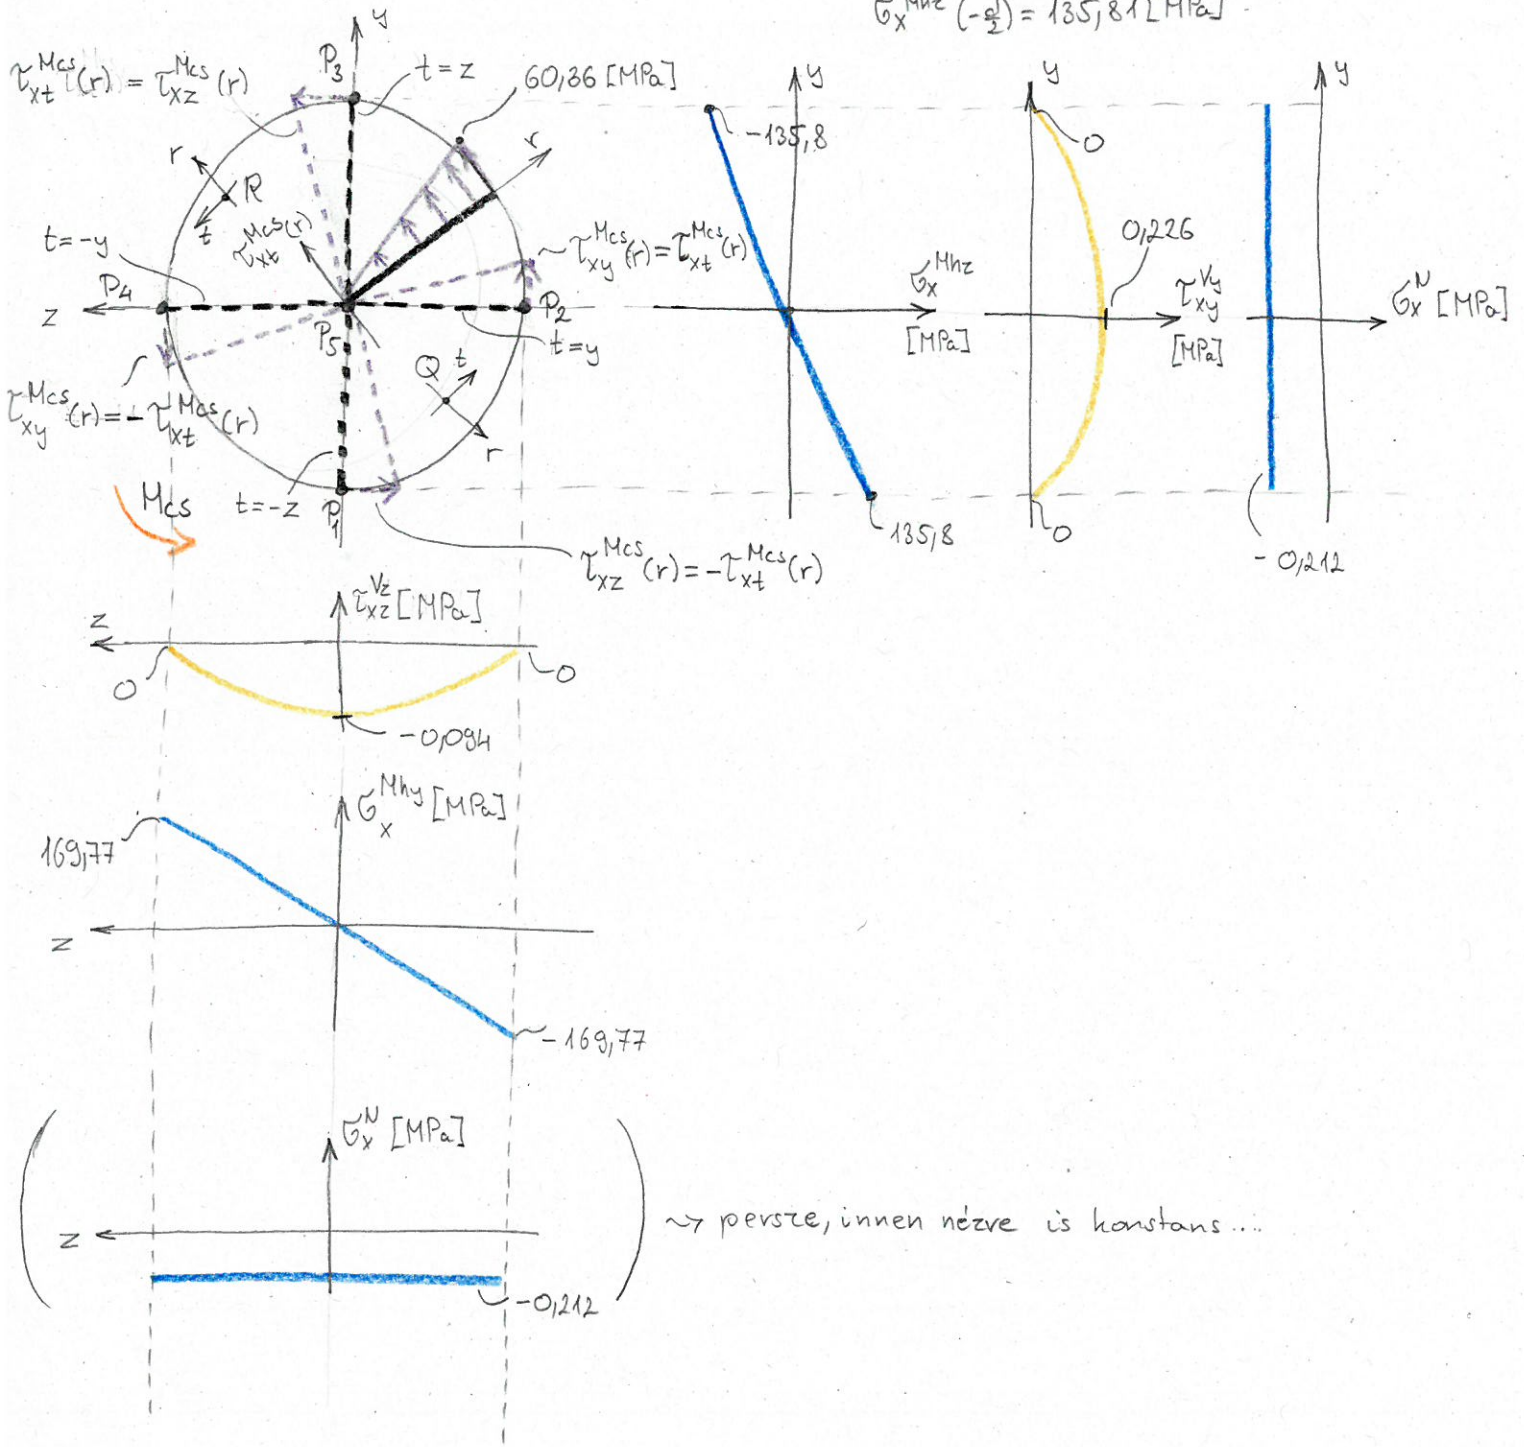 σ_x^Mhz (-d/2) = 135,81 [MPa]
y
P₃
t=z
60,36 [MPa]
τ_xt^Mcs(r) = τ_xz^Mcs(r)
r
R
t
τ_xt^Mcs(r)
r
t=-y
P₄
z
P₅
P₂
t=y
τ_xy^Mcs(r)=τ_xt^Mcs(r)
Q
t
r
τ_xy^Mcs(r)=-τ_xt^Mcs(r)
Mcs
t=-z
P₁
τ_xz^Mcs(r)=-τ_xt^Mcs(r)
y
-135,8
σ_x^Mhz
[MPa]
135,8
y
0
0,226
τ_xy^Vy
[MPa]
0
y
σ_x^N [MPa]
-0,212
τ_xz^Vz [MPa]
z
0
0
-0,094
σ_x^Mhy [MPa]
169,77
z
-169,77
σ_x^N [MPa]
z
-0,212
~> persze, innen nézve is konstans....